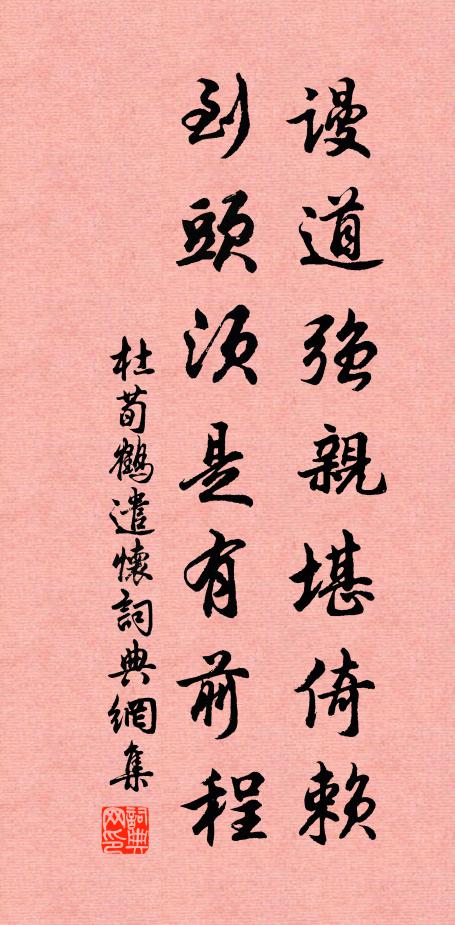 謾道強親堪倚賴
到頭須是有前程
杜荀鶴遣懷詞典網集
詞典网印